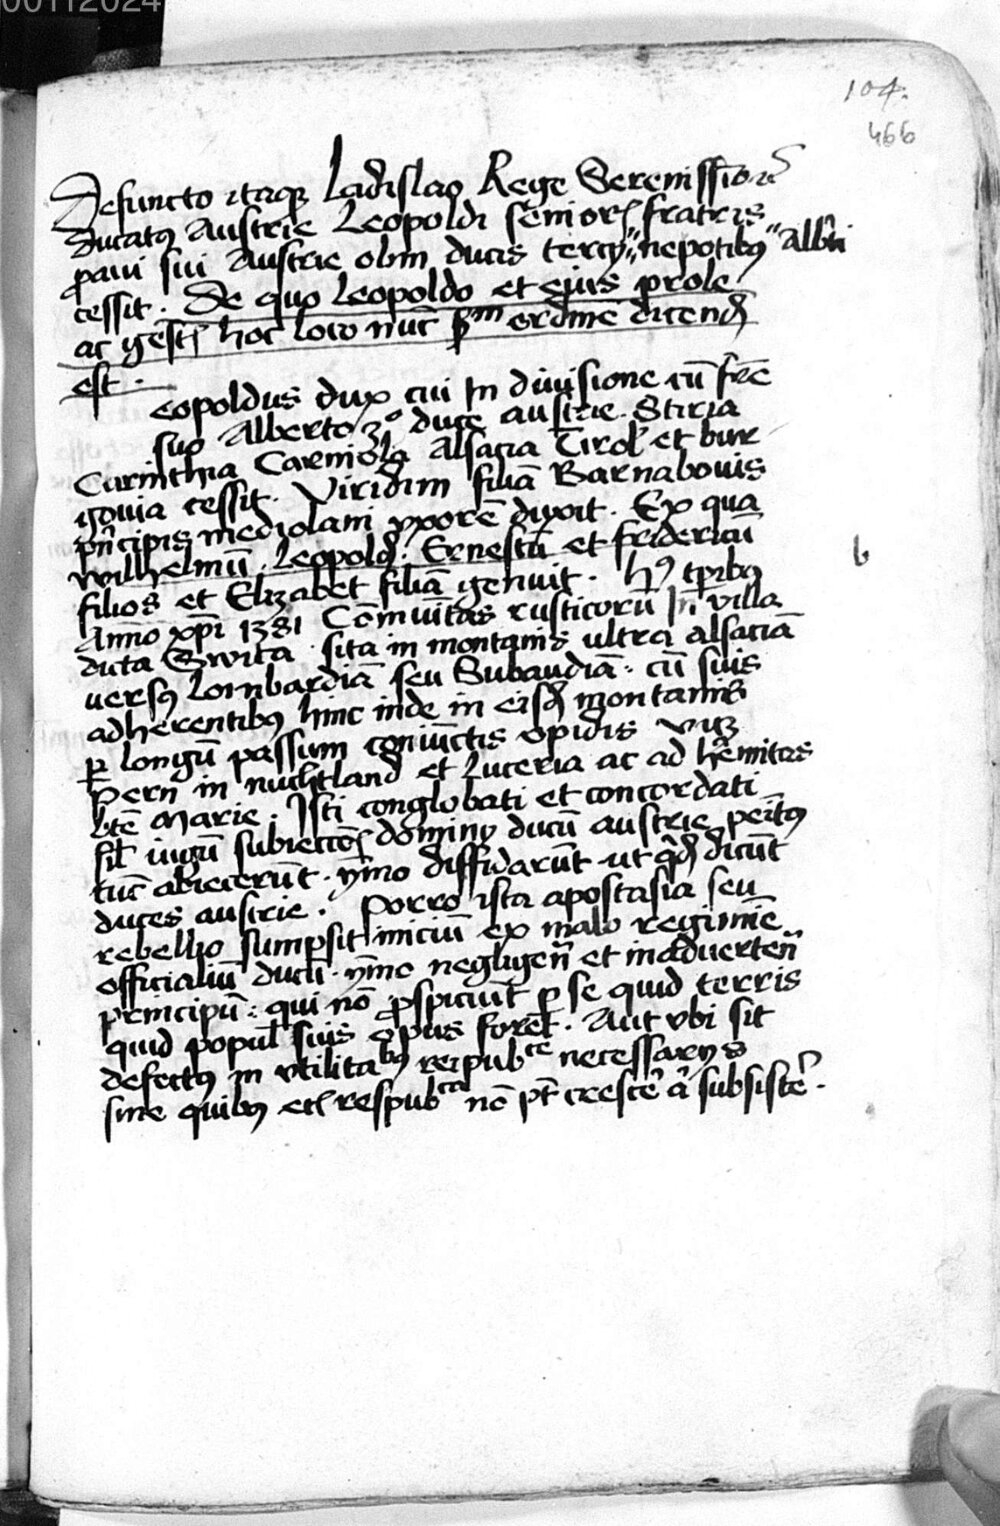 00112024
104.
466
Defuncto itaqꝫ Ladislao Rege Serenissīorꝫ
ducatꝰ Austrie Leopoldi senioris fratris
ꝓaui sui Austrie olim ducis tercÿ nepotibꝰ Alb̄ti
cessit. De quo Leopoldo et eiꝰ prole
ac gestꝭ hoc loco nūc ꝑm ordinē dicendū
est.
eopoldus dux cui In diuisione cū frē
suo Alberto 3º duce austrie. Stiria
Carinthia Carniola Alsacia Tirol' et bur
gouia cessit. Viridim filiā Barnabouis
pn̄cipis mediolani vxorē duxit. Ex qua
wilhelmū. Leopoldū. Ernestū et fridericū
filios et Elizabet filiā genuit. Hꝭ tꝑibꝰ
Anno xp̄i 1381 Cōmuītas rusticorū In villa
b
dicta Swita sita in montanis ultra alsaciā
uersꝰ Lombardiā seu Subaudiā. cū suis
adherentibꝰ hinc inde in eisdē montanis
ꝑ longū passum coniūctis opidis vitꝫ
Pern in nuchtland et Luceria ac ad h̓emitas
btē Marie. Isti conglobati et concordati
sil' iugū subiectiōis dominÿ ducū austrie penitꝰ
tūc abiecerūt. ÿmo diffidarūt ut qd̄ dicūt
duces austrie. Porro ista apostasia seu
rebellio sumpsit iniciū ex malo regiminē
officialiū ducū. ÿmo negligen̄ et inaduerten̄
principū: qui nō ꝓspiciūt ꝑ se quid terris
quid popul' suis opus foret. Aut vbi sit
defectꝰ in vtilitabꝰ reipubce necessarÿs
sine quibꝰ etꝭ respubca nō pt̄ cresce͛ a͛ subsiste͛.